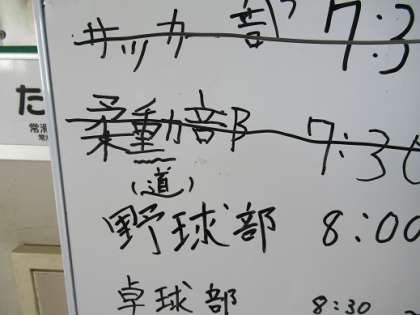 サッカー部 7:3
柔動部 7:30
(道)
野球部 8:00
卓球部 8:30
た
常滑